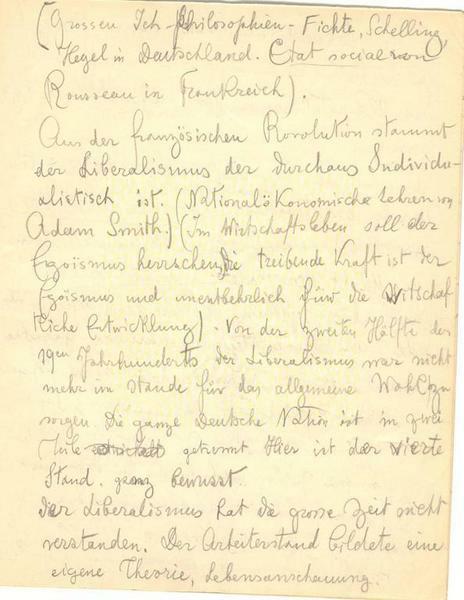 (Grossen Ich-Philosophien - Fichte, Schelling,
Hegel in Deutschland. Etat social von
Rousseau in Frankreich).
Aus der französischen Rovolution stammt
der Liberalismus der durchaus Individu-
alistisch ist. (Nationalökonomische Lehren von
Adam Smith.) (Im Wirtschaftsleben soll der
Egoismus herrschen, die treibende Kraft ist der
Egoismus und unentbehrlich für die Witschaf
tliche Entwicklung). Von der zweiten Hälfte des
19en Jahrhunderts der Liberalismus war nicht
mehr im stande für das allgemeine Wohl zu
sorgen. Die ganze Deutsche Nation ist in zwei
Teile getrennt. Hier ist der vierte
Stand. ganz bewusst.
der Liberalismus hat die grosse Zeit nicht
verstanden. Der Arbeiterstand bildete eine
eigene Theorie, Lebensanschauung.